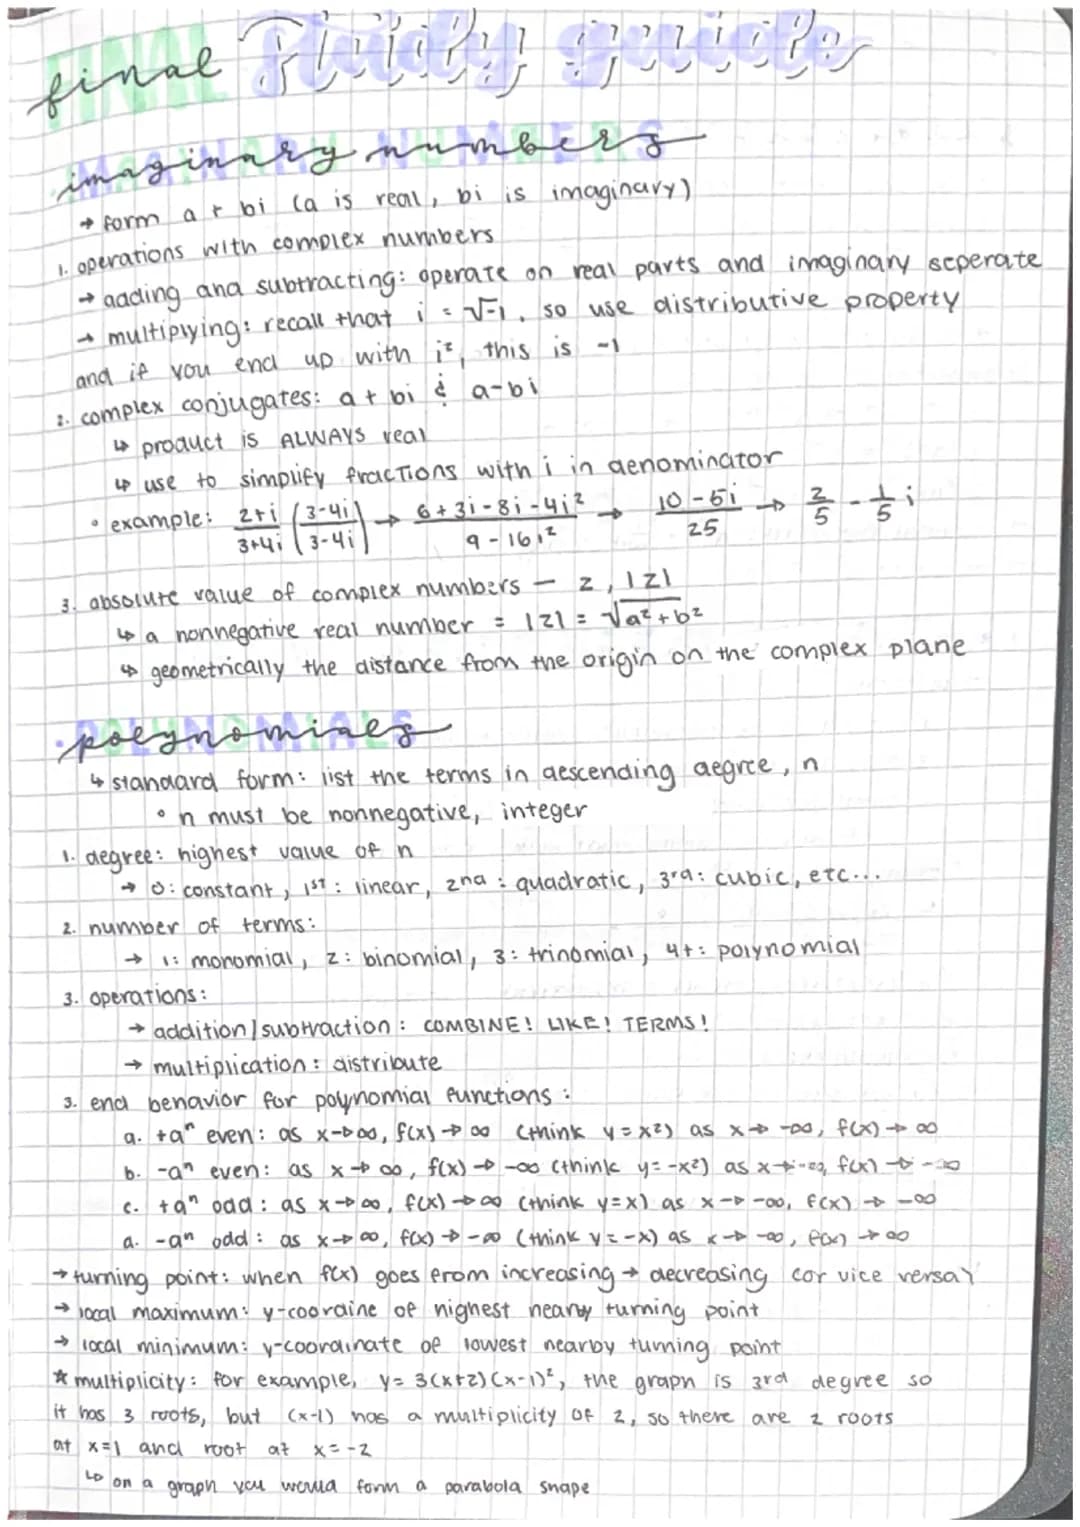 final study guide
FINAL
imaginary numbers
IMAGINARY NUMBERS
→ form a + bi (a is real, bi is imaginary)
1. operations with complex numbers
→ adding and subtracting: operate on real parts and imaginary seperate
→ multiplying: recall that i = √-1, so use distributive property
and if you end up with i², this is -1
2. complex conjugates: a + bi & a-bi
↳ product is ALWAYS real
↳ use to simplify fractions with i in denominator
• example: (2+i)/(3+4i) ((3-4i)/(3-4i)) → (6+3i-8i-4i²)/(9-16i²) → (10-5i)/25 → 2/5 - 1/5 i
3. absolute value of complex numbers — z, |z|
↳ a nonnegative real number = |z| = √a²+b²
↳ geometrically the distance from the origin on the complex plane
polynomials
POLYNOMIALS
↳ standard form: list the terms in descending degree, n
• n must be nonnegative, integer
1. degree: highest value of n
→ 0: constant, 1st: linear, 2nd: quadratic, 3rd: cubic, etc...
2. number of terms:
→ 1: monomial, 2: binomial, 3: trinomial, 4+: polynomial
3. operations:
→ addition/subtraction: COMBINE! LIKE! TERMS!
→ multiplication: distribute
3. end behavior for polynomial functions:
a. +aⁿ even: as x→∞, f(x)→∞ (think y=x²) as x→-∞, f(x)→∞
b. -aⁿ even: as x→∞, f(x)→-∞ (think y=-x²) as x→-∞, f(x)→-∞
c. +aⁿ odd: as x→∞, f(x)→∞ (think y=x) as x→-∞, f(x)→-∞
d. -aⁿ odd: as x→∞, f(x)→-∞ (think y=-x) as x→-∞, f(x)→∞
→ turning point: when f(x) goes from increasing → decreasing (or vice versa)
→ local maximum: y-coordine of highest nearby turning point
→ local minimum: y-coordinate of lowest nearby turning point
* multiplicity: for example, y= 3(x+2)(x-1)², the graph is 3rd degree so
it has 3 roots, but (x-1) has a multiplicity of 2, so there are 2 roots
at x=1 and root at x=-2
↳ on a graph you would form a parabola shape